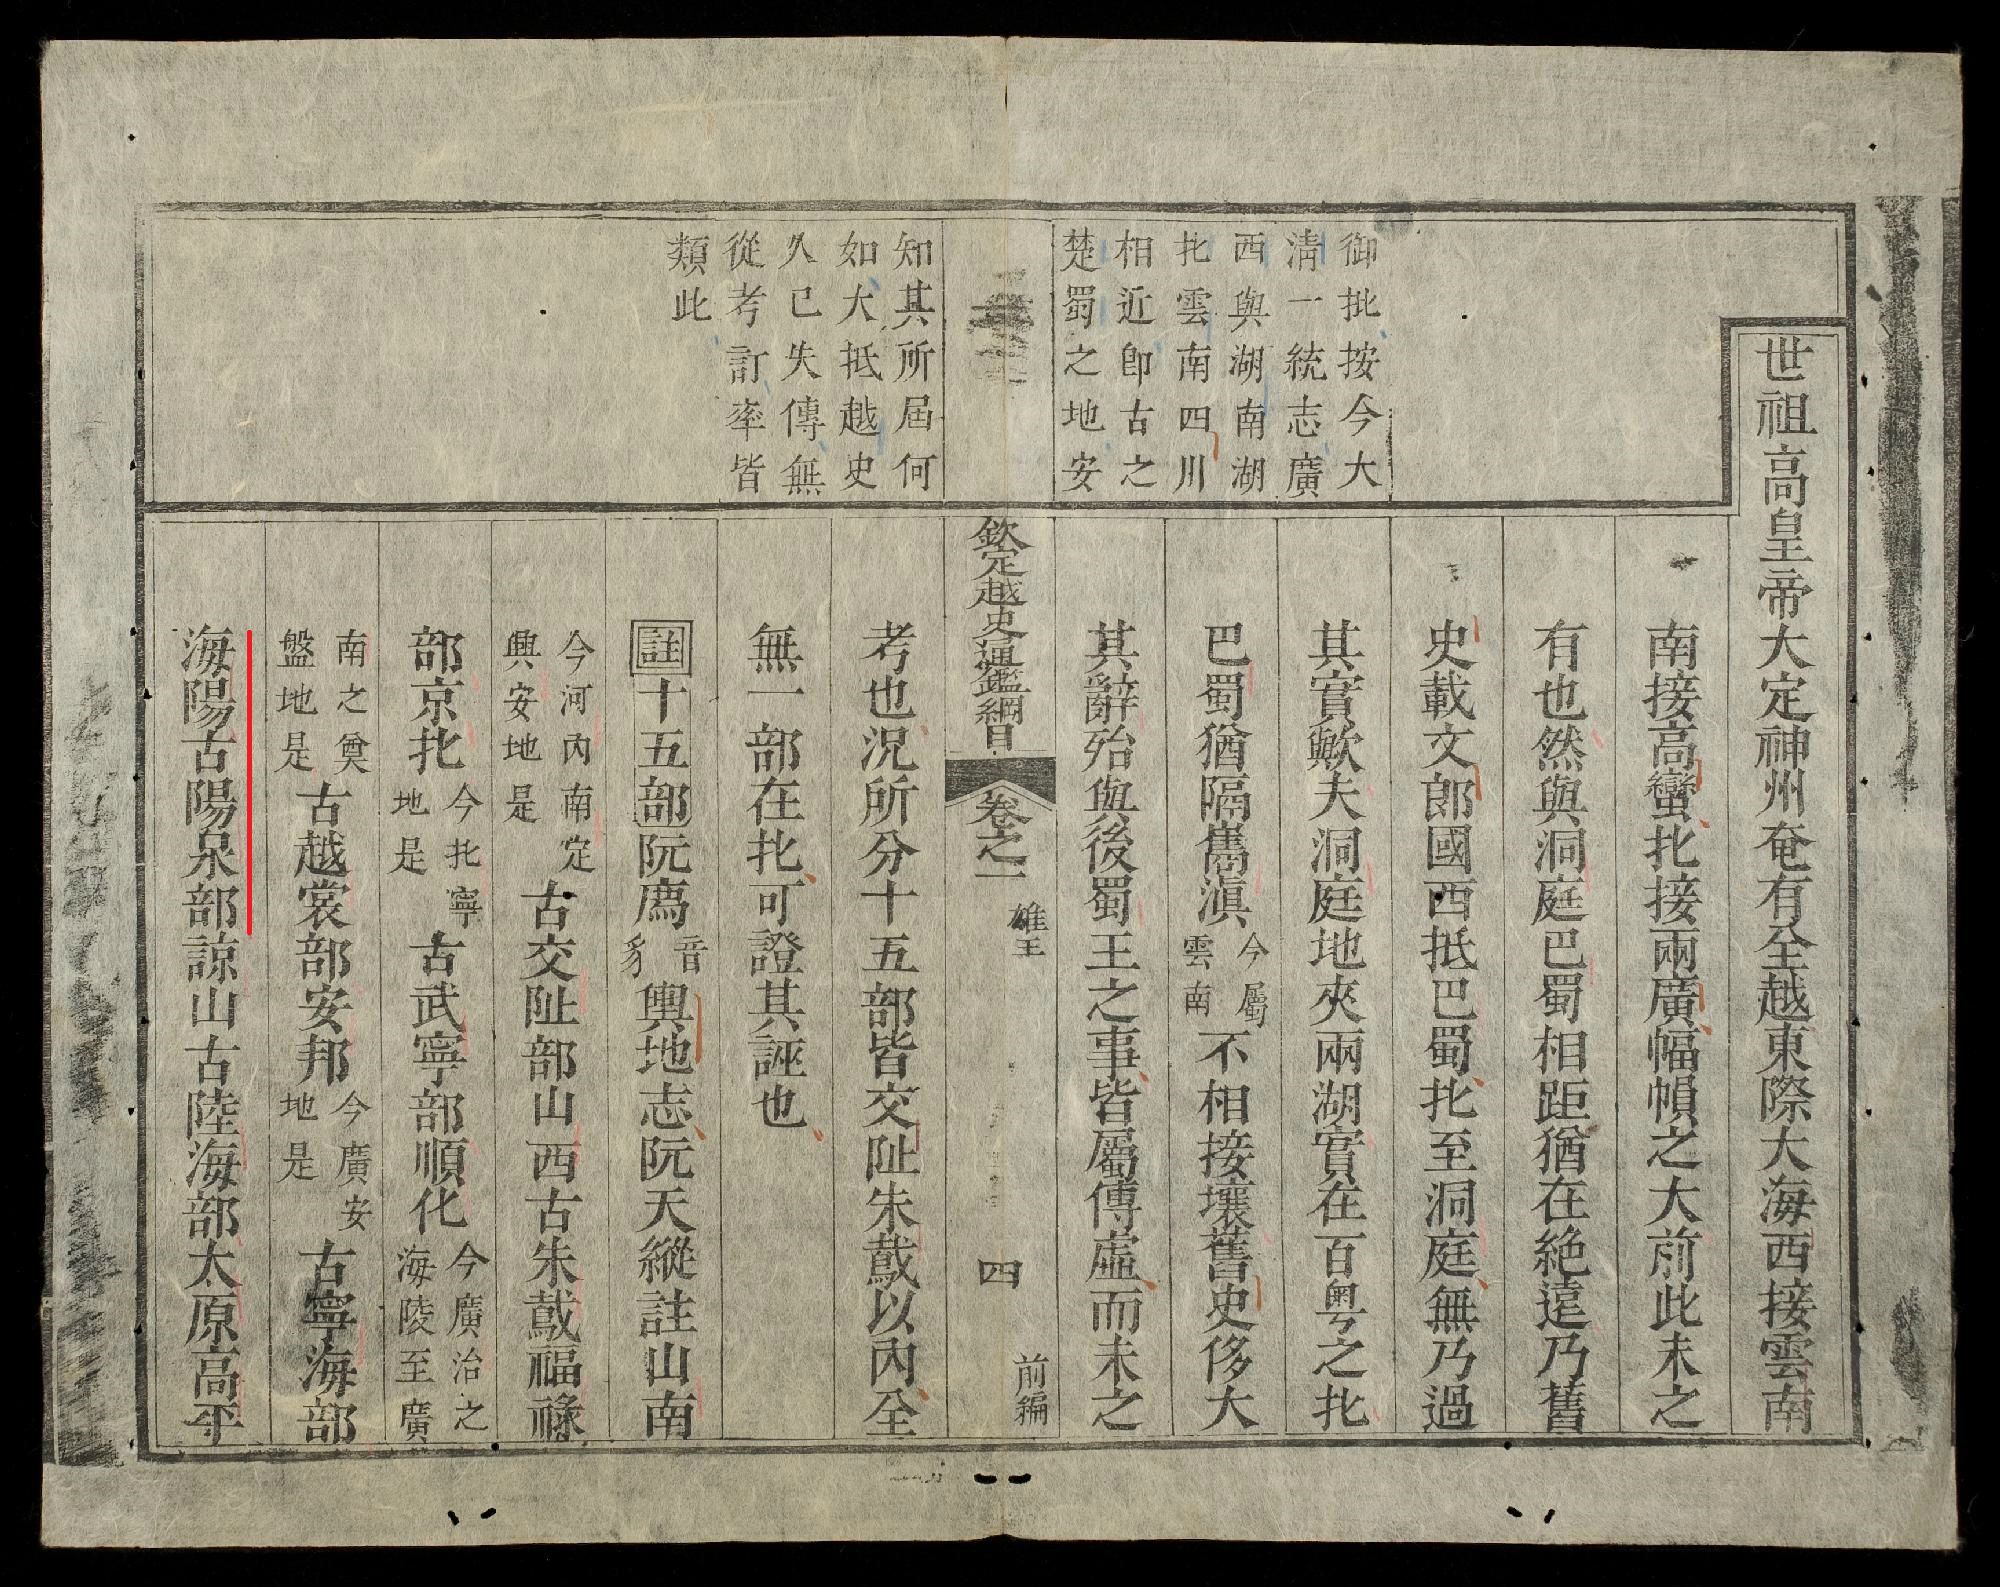 御批按今大
清一統志廣
西與湖南湖
北雲南四川
相近卽古之
楚蜀之地安
世祖高皇帝大定神州奄有全越東際大海西接雲南
南接高蠻北接兩廣幅幀之大前此未之
有也然與洞庭巴蜀相距猶在絶遠乃舊
史載文郎國西抵巴蜀北至洞庭無乃過
其實歟夫洞庭地夾兩湖實在百粵之北
巴蜀猶隔雟滇今屬雲南不相接壤舊史侈大
其辭殆與後蜀王之事皆屬傳虛而未之
欽定越史通鑑綱目 卷之一 雄王 四 前編
知其所屆何
如大抵越史
久已失傳無
從考訂率皆
類此
考也況所分十五部皆交趾朱鳶以內全
無一部在北可證其誣也
註十五部阮廌音豸輿地志阮天縱註山南
今河內南定興安地是古交趾部山西古朱鳶福祿
部京北今北寧地是古武寧部順化今廣治之海陵至廣
南之奠盤地是古越裳部安邦今廣安地是古寧海部
海陽古陽泉部諒山古陸海部太原高平